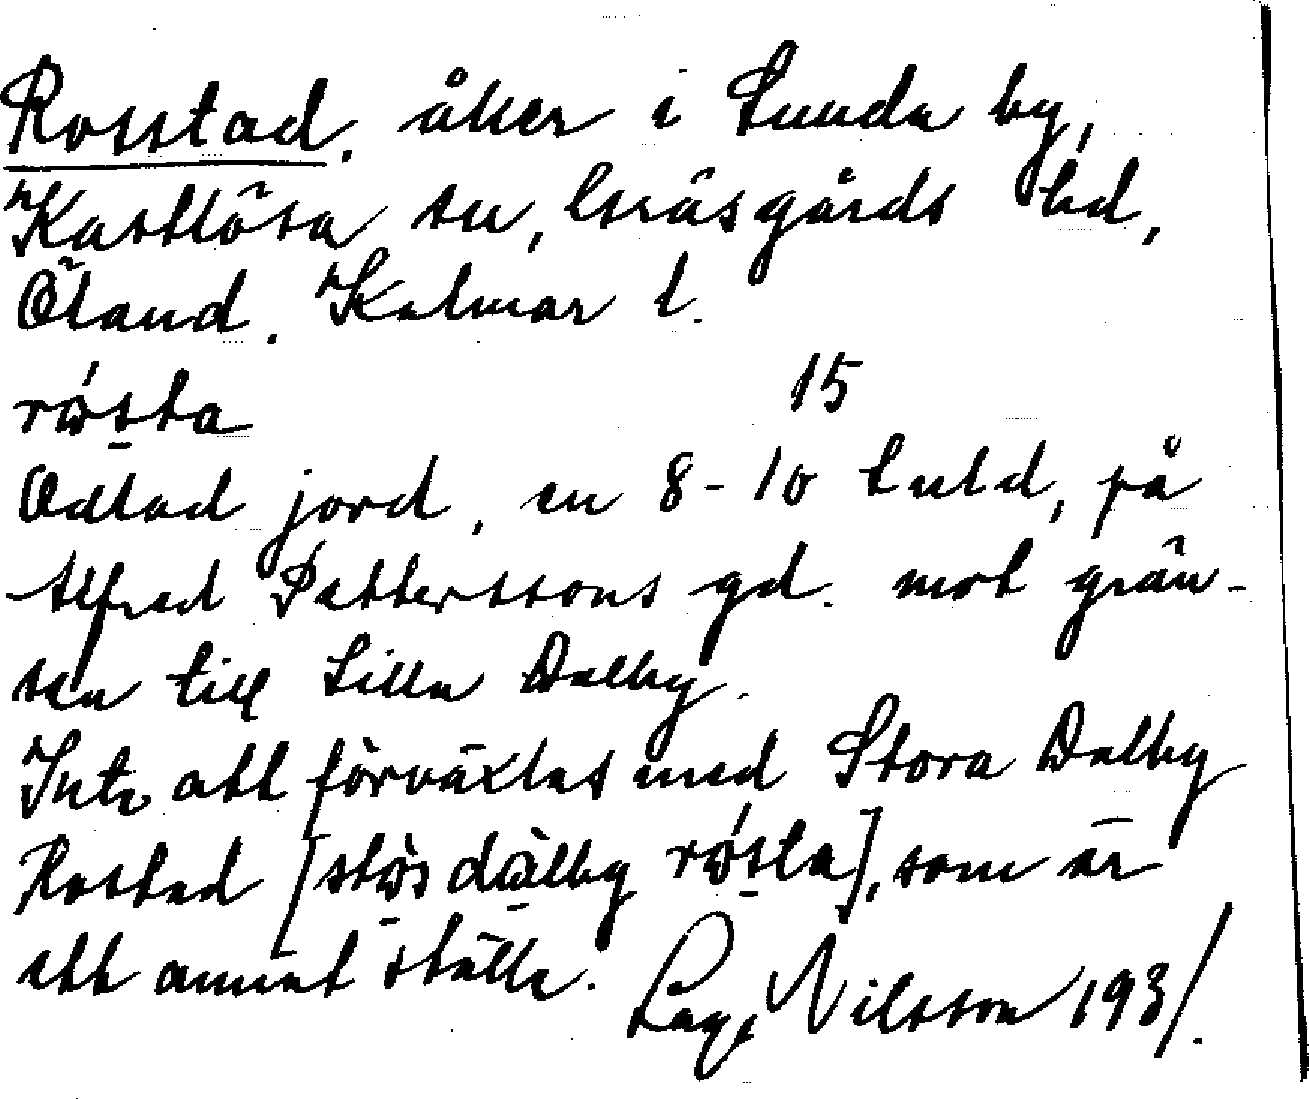 Rosstad. åker i Lunda by,
Kastlösa sn, Gräsgårds hd,
Öland. Kalmar l.
rósta 15
Odlad jord, en 8-10 tnld, på
Alfred Petterssons gd. mot grän-
sen till Lilla Dalby.
Inte att förväxlas med Stora Dalby
Rostad [stòs dàlby rósta], som är
ett annat ställe. Lage Nilsson 1931.